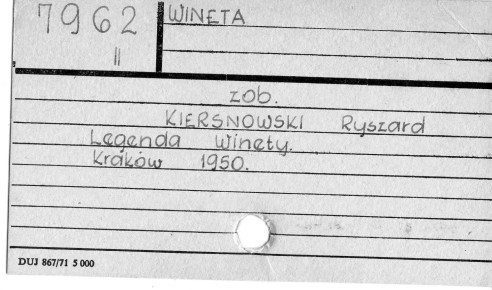 7962 WINETA
II
zob.
KIERSNOWSKI Ryszard
Legenda Winety.
Kraków 1950.
DUJ 867/71 5 000